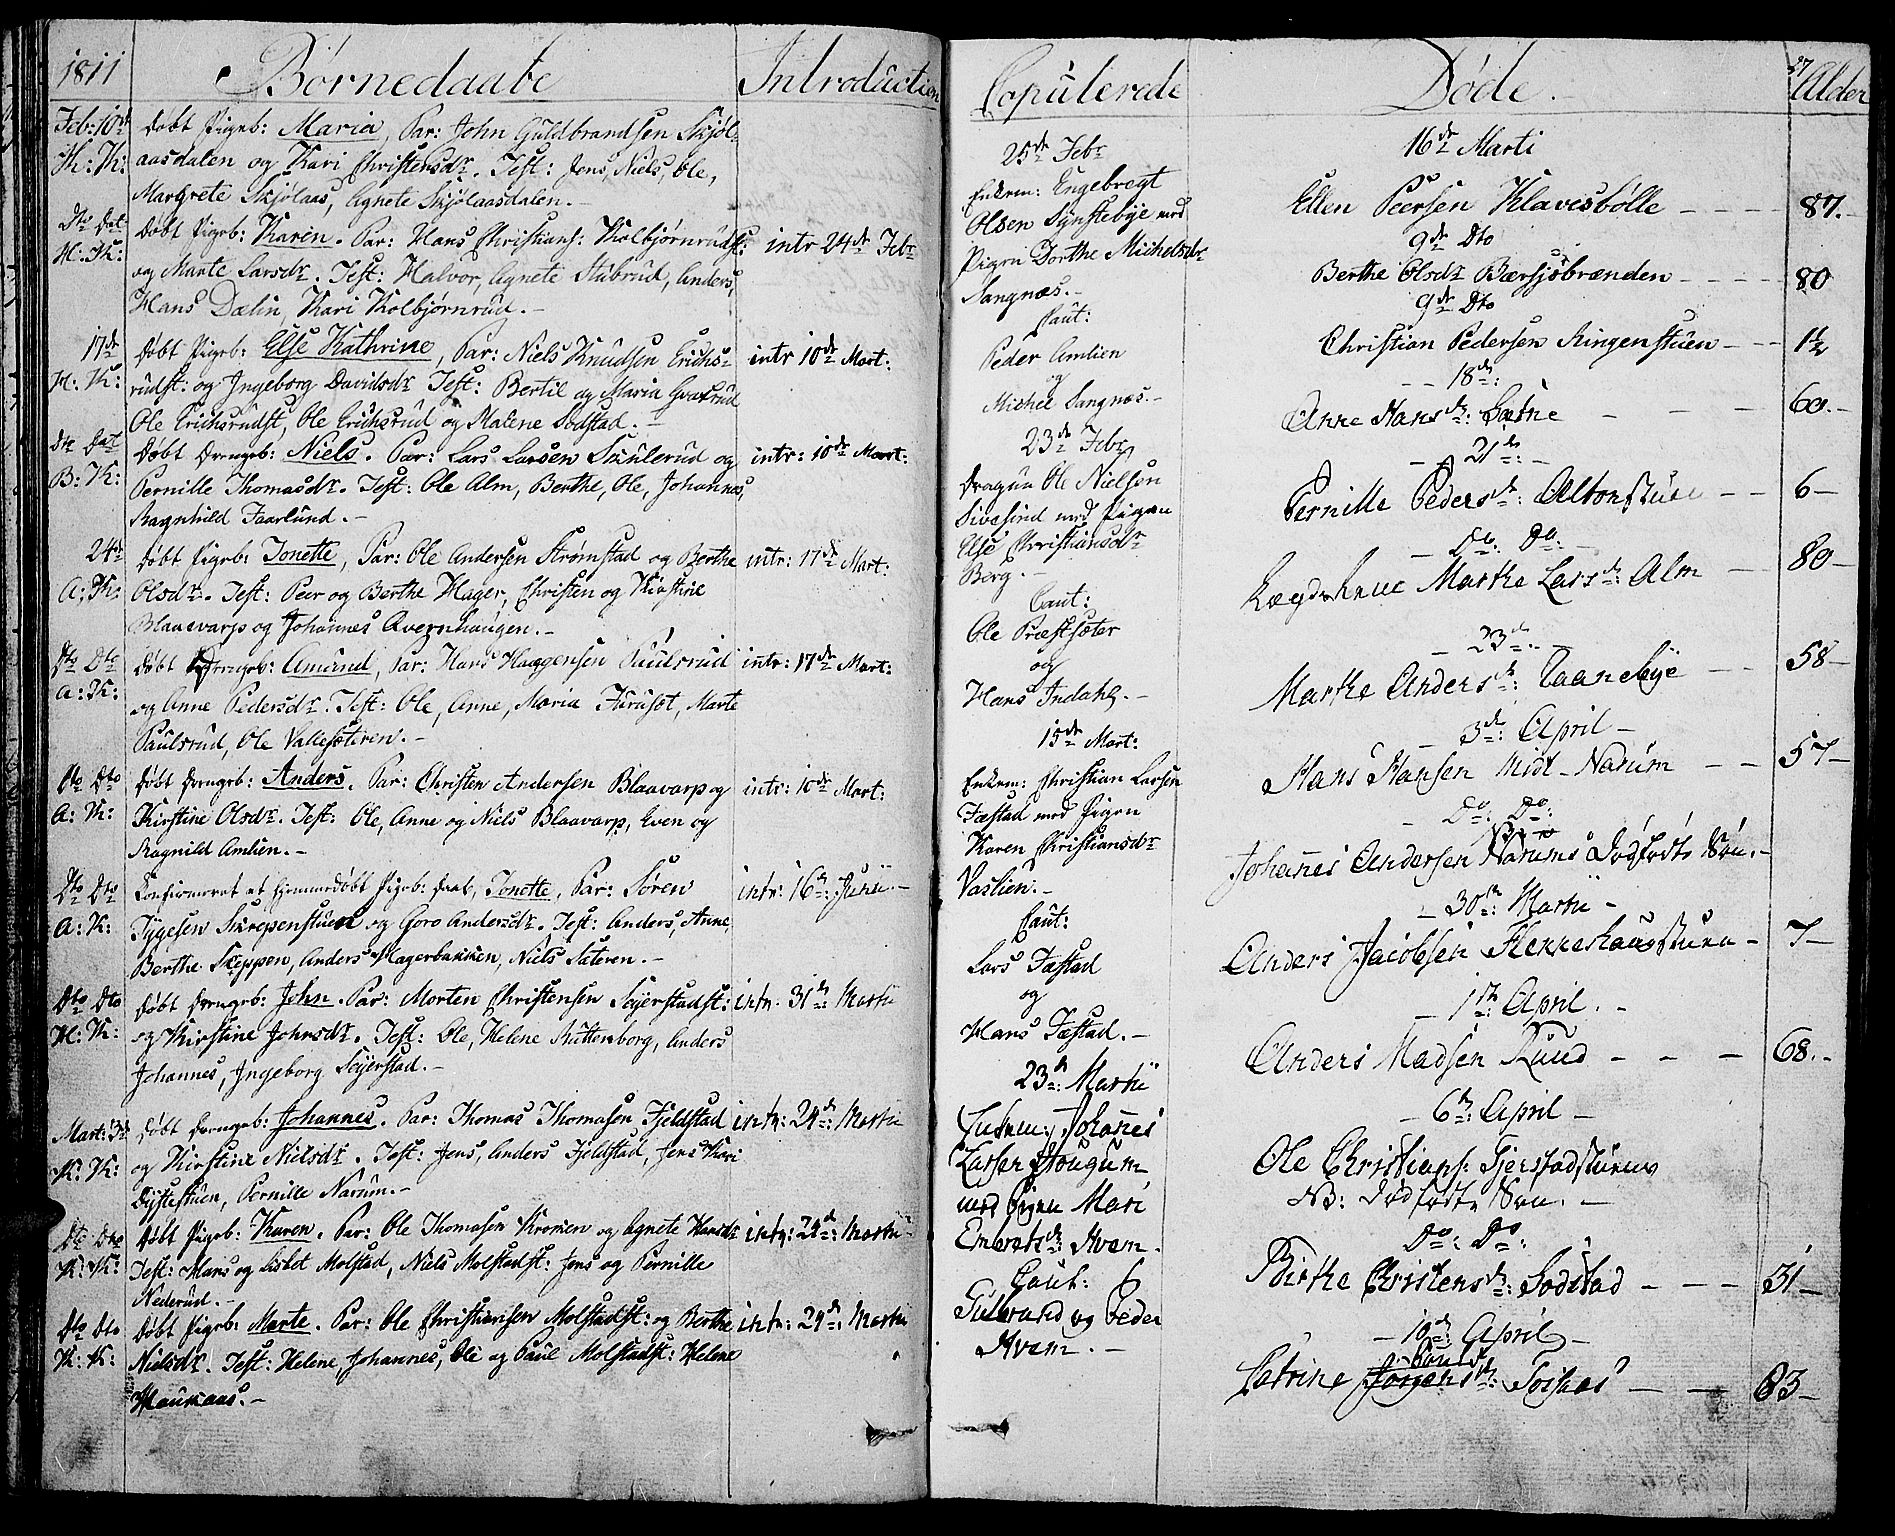 1811
Børnedaabe
Introduction
Feb: 10de
H: K:
døbt Pigeb: Maria, Par: John Guldbrandsen Skjøl-
aasdalen og Kari Christensdr. Test: Jens, Niels, Ole,
Margrete Skjølaas, Agnete Skjølaasdalen.-
Dto Dat
H: K:
døbt Pigeb: Karen. Par: Hans Christians: Kolbjørnrudst:
intr 24de Febr
og Marte Larsdr. Test: Halvor, Agnete Stubrud, Anders,
Hans Dælin, Kari Kolbjørnrud.-
17de
H: K:
døbt Pigeb: Else Kathrine, Par: Niels Knudsen Erichs-
intr 10de Mart:
rudst: og Ingeborg Davidsdr Test: Bertil og Maria Gvarud
Ole Erichsrudst, Ole Erichsrud og Malene Sodstad.-
Dto Dat
B: K:
Døbt Drengeb: Niels. Par: Lars Larsen Skulerud og
intr: 10de Mart:
Pernille Thomasdr. Test: Ole Alm, Berthe, Ole, Johannes,
Ragnhild Faarlund.-
24de
A: K:
døbt Pigeb: Jonette, Par: Ole Andersen Strømstad og Berthe
intr: 17de Mart:
Olsdr. Test: Peer og Berthe Hager, Christen og Kirstine
Blaavarp og Johannes Qvernhaugen.-
Dto Dto
A: K:
døbt Drengeb: Amund, Par: Hans Haagensen Paulsrud
intr: 17de Mart:
og Anne Pedersdr. Test: Ole, Anne, Maria Furuset, Marte
Paulsrud, Ole Vallesæteren.-
Dto Dto
A: K:
døbt Drengeb: Anders. Par: Christen Andersen Blaavarp og
intr: 10de Mart:
Kirstine Olsdr. Test: Ole, Anne og Niels Blaavarp, Even og
Ragnild Amlien.-
Dto Dto
A: K:
Confirmeret et hjemmedøbt Pigeb: Daab, Jonette, Par: Søren
intr: 16de Junii.-
Tygesen Skrepenstuen og Goro Andersdr. Test: Anders, Anne
Berthe Skeppen, Anders Hagerbakken, Niels Sæteren.-
Dto Dto
H: K:
døbt Drengeb: John. Par: Morten Christensen Sejerstadst:
intr. 31te: Martii
og Kirstine Johnsdr. Test: Ole, Helene Ruttenborg, Anders
Johannes, Ingeborg Sejerstad.-
Mart: 3de
K: K:
døbt Drengeb: Johannes. Par: Thomas Thomasen Fjeldstad
intr: 24de: Martii
og Kirstine Nielsdr. Test: Jens, Anders Fjeldstad, Jens Kari
Dystestuen, Pernille Narum.-
Dto Dto
K: K:
døbt Pigeb: Karen. Par: Ole Thomasen Kroken og Agnete Hansdr
intr: 24de: Martii
Test: Hans og Lisbet Molstad, Niels Molstadst: Jens og Pernille
Nederud.-
Dto Dto
K: K:
Døbt Pigeb: Marte. Par: Ole Christiansen Molstadst: og Berthe
intr: 24de: Martii
Nielsdr. Test: Helene, Johannes, Ole og Paul Molstadst: Helene
Haukaas.-
Copulerede
25de Febr
Enkem: Engebregt
Olsen Synstebye med
Pigen Dorthe Michelsdr
Sangnæs.-
Caut:
Peder Amlien
og
Michel Sangnæs.-
23de Febr
Dragun Ole Nielsen
Sivesind med Pigen
Else Christiansdr
Berg.-
Caut:
Ole Præstsæter
og
Hans Indahl.-
15de Mart:
Enkem: Christian Larsen
Fæstad med Pigen
Karen Christiansdr
Vaslien.-
Caut:
Lars Fæstad
og
Hans Fæstad.-
23de Martii
Enkem: Johannes
Larsen Hougum
med Pigen Mari
Embretsdr: Hvem.
Caut:
Gulbrand og Peder
Hvem.-
Døde.
27
Alder
16de Marti
Ellen Peersen Klavesbølle - - - 87.-
9de Dto
Berthe Olsdr Bærsjøbrænden - - - 80
9de Dto
Christian Pedersen Ringenstuen - - 1½
- - 18de:
Anne Hansdr: Sætne - - - 60.-
- 21de: -
Pernille Pedersdr: Alfonstuen - - 6-
- Do: Do: -
Lægdskone Marthe Larsdr: Alm - 80-
- 23de: -
Marthe Andersdr: Taanebye - - 58-
- 3de: April -
Hans Hansen Midt-Narum - - 57-
- Do: Do:
Johannes Andersen Narums Dødfødte Søn.-
- 30te: Martii -
Anders Jacobsen Flekkehaugstuen - 7-
- 1te: April. -
Anders Madsen Ruud - - - 68.-
- 6te: April -
Ole Christians: Gjerstadstuens
NB: Dødfødte Søn. -
Do: Do:
Birthe Christensdr: Sodstad - - - 31-
- 10de: April -
Pouls
Catrine Jörgensdr: Sojhaas - - 83-